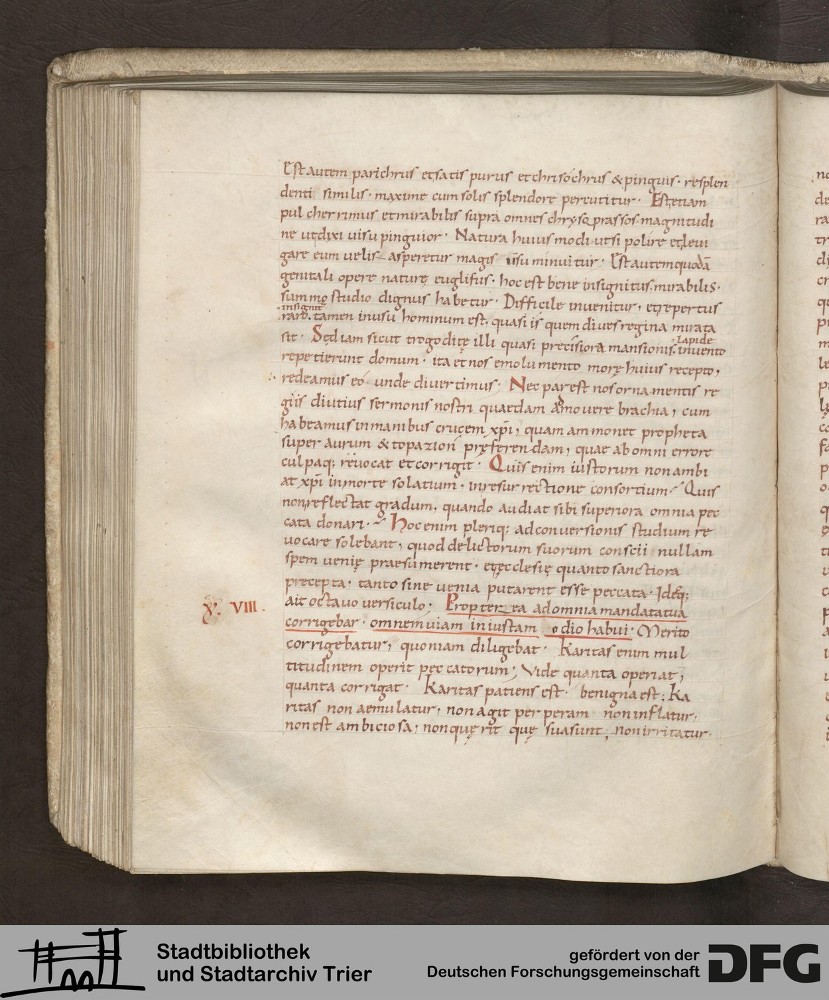 Est autem parichrus et satis purus et chrisochrus & pinguis · resplen
denti similis · maxime cum solis splendore percutitur · Est etiam
pulcherrimus et mirabilis supra omnes chrysoprassos magnitudi
ne ut dixi visu pinguior · Natura huius modi ut si polire et levi
gare eum velis asperetur magis usu minuitur · Est autem quodā
genitali opere naturę euglifus · hoc est bene insignitus · mirabilis ·
summo studio dignus habetur · Difficile invenitur, et repertus
insignit
raro tamen in usu hominum est, quasi is quem dives regina mirata
sit · Sed iam sicut trogoditę illi quasi precisiora mansionis invento
lapide
repetierunt domum · ita et nos emolumento morę huius recepto,
redeamus eo unde divertimus · Nec par est nos ornamentis re
giis diutius sermonis nostri quaedam amovere brachia, cum
habeamus in manibus crucem xp̄i, quam ammonet propheta
super aurum & topazion pręferendam, quae ab omni errore
culpaq; revocat et corrigit · Quis enim iustorum non ambi
at xp̄i in morte solatium · in resurrectione consortium · Quis
non reflectat gradum, quando audiat sibi superiora omnia pec
cata donari · Hoc enim pleriq; ad conversionis studium re
vocare solebant, quod delictorum suorum conscii nullam
spem venię praesumerent · et ęcclesię quanto sanctiora
precepta · tanto sine venia putarent esse peccata · Ideq;
ait octavo versiculo; Propterea ad omnia mandata tua
V. VIII.
corrigebar · omnem viam iniustam odio habui · Merito
corrigebatur, quoniam diligebat · Karitas enim mul
titudinem operit peccatorum; Vide quanta operiat,
quanta corrigat · Karitas patiens est · benigna est; Ka
ritas non aemulatur, non agit perperam non inflatur,
non est ambiciosa, non quęrit quę sua sunt, non irritatur ·
Stadtbibliothek
und Stadtarchiv Trier
gefördert von der
Deutschen Forschungsgemeinschaft
DFG